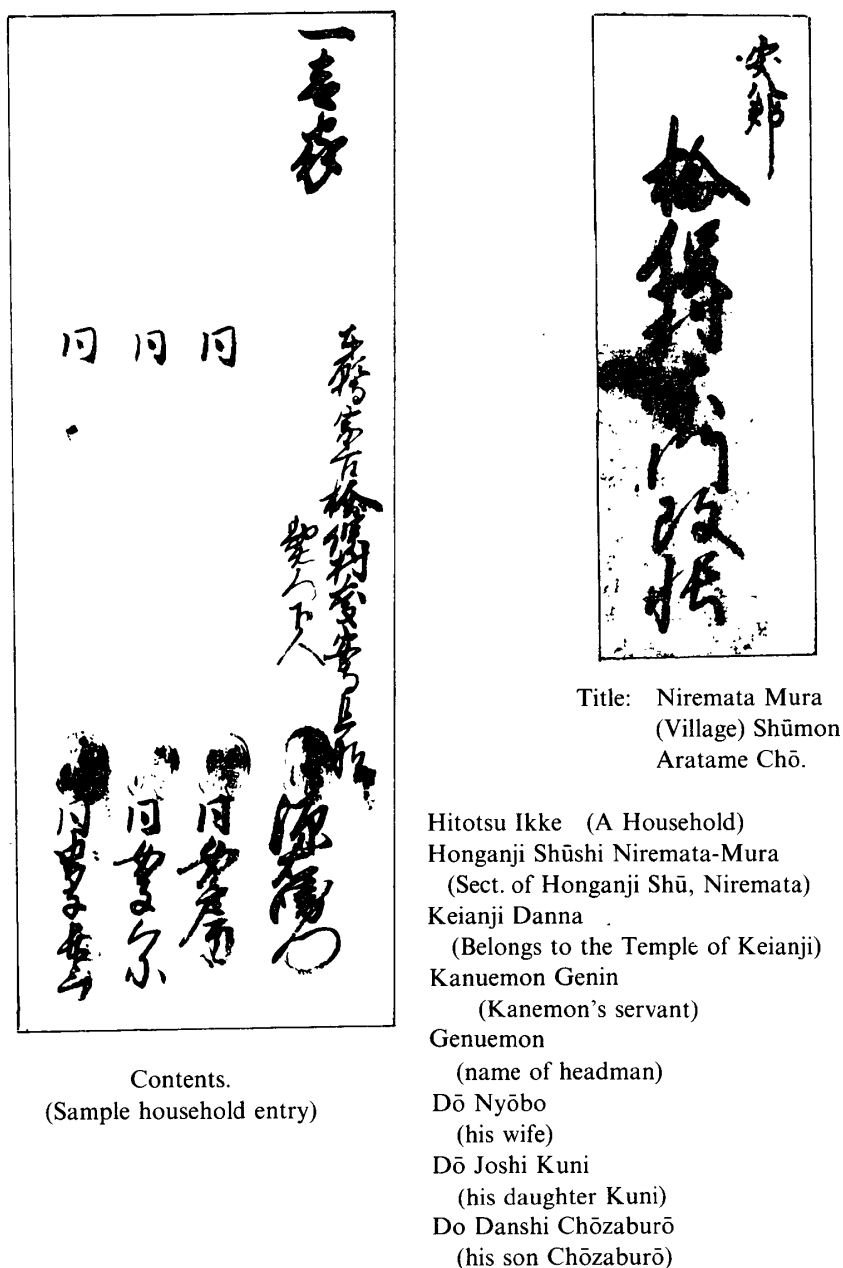 一壱家
宗旨楡俣村
下人
同 同女房
同 同女子くに
同 同男子
楡俣村宗門改帳
Contents.
(Sample household entry)
Title: Niremata Mura
(Village) Shūmon
Aratame Chō.
Hitotsu Ikke (A Household)
Honganji Shūshi Niremata-Mura
(Sect. of Honganji Shū, Niremata)
Keianji Danna
(Belongs to the Temple of Keianji)
Kanuemon Genin
(Kanemon's servant)
Genuemon
(name of headman)
Dō Nyōbo
(his wife)
Dō Joshi Kuni
(his daughter Kuni)
Do Danshi Chōzaburō
(his son Chōzaburō)